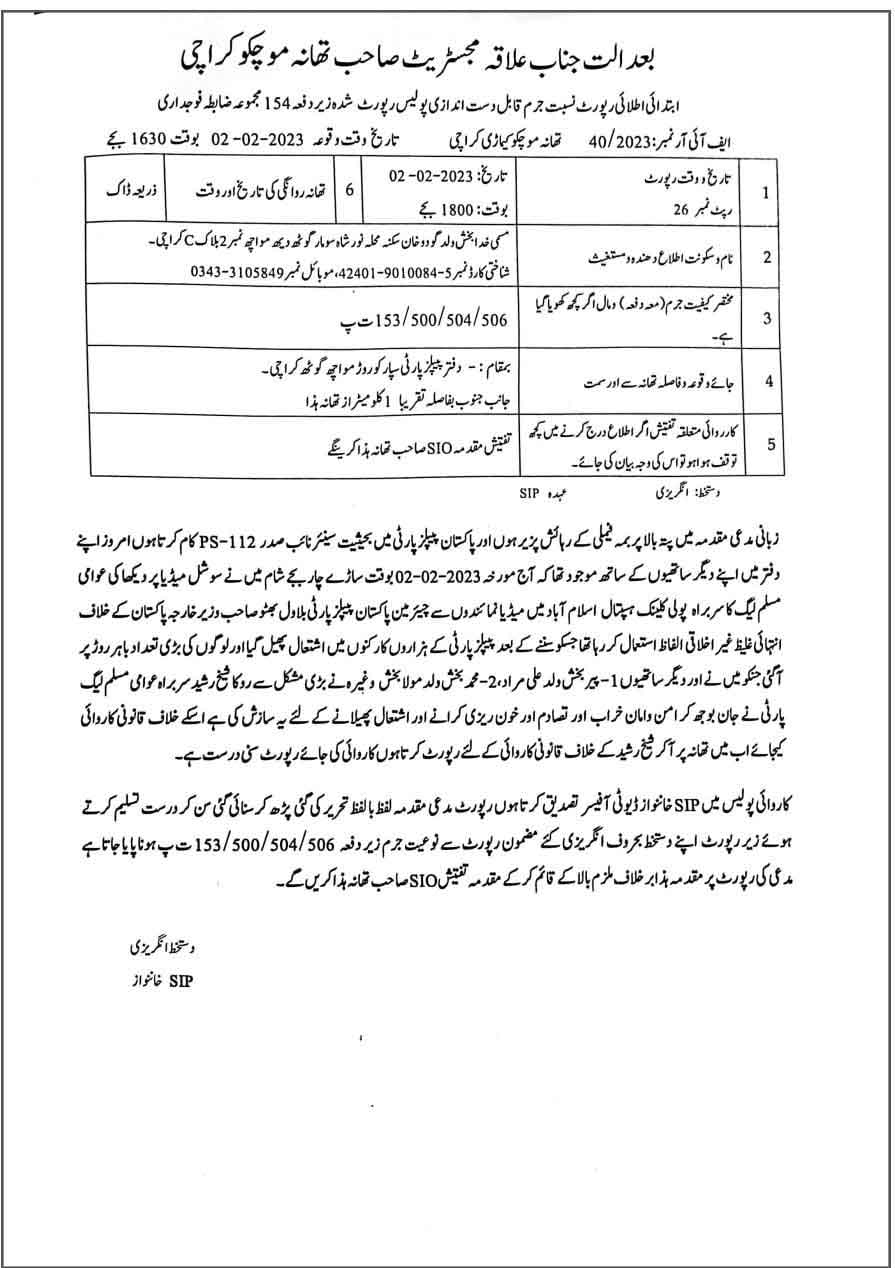 بعدالت جناب علاقہ مجسٹریٹ صاحب تھانہ موچکو کراچی
ابتدائی اطلائی رپورٹ نسبت جرم قابل دست اندازی پولیس رپورٹ شدہ زیر دفعہ 154 مجموعہ ضابطہ فوجداری
ایف آئی آر نمبر: 40/2023 تھانہ موچکو کیماڑی کراچی تاریخ وقت وقوعہ 02-02-2023 بوقت 1630 بجے
1 تاریخ و وقت رپورٹ تاریخ: 02-02-2023 6 تھانہ روانگی کی تاریخ اور وقت ذریعہ ڈاک
رپٹ نمبر 26 بوقت: 1800 بجے
2 نام و سکونت اطلاع دھندہ و مستغیث مسمی خدا بخش ولد گودو خان سکنہ محلہ نور شاہ سومار گوٹھ دیھ مواچھ نمبر 2 بلاک C کراچی۔
شناختی کارڈ نمبر 5-9010084-42401، موبائل نمبر 0343-3105849
3 مختصر کیفیت جرم (معہ دفعہ) ومال اگر کچھ کھویا گیا
ہے۔ 153/500/504/506 ت پ
4 جائے وقوعہ و فاصلہ تھانہ سے اور سمت بمقام:- دفتر پیپلز پارٹی سپارکو روڑ مواچھ گوٹھ کراچی۔
جانب جنوب بفاصلہ تقریبا 1 کلومیٹر از تھانہ ہذا
5 کارروائی متعلقہ تفتیش اگر اطلاع درج کرنے میں کچھ
توقف ہوا ہو تو اس کی وجہ بیان کی جائے۔ تفتیش مقدمہ SIO صاحب تھانہ ہذا کرینگے
دستخط: انگریزی عہدہ SIP
زبانی مدعی مقدمہ میں پتہ بالا پر بمہ فیملی کے رہائش پزیر ہوں اور پاکستان پیپلز پارٹی میں بحیثیت سینئر نائب صدر PS-112 کام کرتا ہوں امروز اپنے
دفتر میں اپنے دیگر ساتھیوں کے ساتھ موجود تھا کہ آج مورخہ 02-02-2023 بوقت ساڑے چار بجے شام میں نے سوشل میڈیا پر دیکھا کی عوامی
مسلم لیگ کا سربراہ پولی کلینک ہسپتال اسلام آباد میں میڈیا نمائندوں سے چیئرمین پاکستان پیپلز پارٹی بلاول بھٹو صاحب وزیر خارجہ پاکستان کے خلاف
انتہائی غلیظ غیر اخلاقی الفاظ استعال کر رہا تھا جسکو سننے کے بعد پیپلز پارٹی کے ہزاروں کارکنوں میں اشتعال پھیل گیا اور لوگوں کی بڑی تعداد باہر روڑ پر
آگئی جنکو میں نے اور دیگر ساتھیوں 1- پیر بخش ولد علی مراد، 2- محمد بخش ولد مولا بخش وغیرہ نے بڑی مشکل سے روکا شیخ رشید سربراہ عوامی مسلم لیگ
پارٹی نے جان بوجھ کر امن وامان خراب اور تصادم اور خون ریزی کرانے اور اشتعال پھیلانے کے لئے یہ سازش کی ہے اسکے خلاف قانونی کاروائی
کیجائے اب میں تھانہ پر آکر شیخ رشید کے خلاف قانونی کاروائی کے لئے رپورٹ کرتا ہوں کاروائی کی جائے رپورٹ سنی درست ہے۔
کاروائی پولیس میں SIP خانواز ڈیوٹی آفیسر تصدیق کرتا ہوں رپورٹ مدعی مقدمہ لفظ بالفظ تحریر کی گئی پڑھ کر سنائی گئی سن کر درست تسلیم کرتے
ہوئے زیر رپورٹ اپنے دستخط بحروف انگریزی کئے مضمون رپورٹ سے نوعیت جرم زیر دفعہ 153/500/504/506 ت پ ہونا پایا جاتا ہے
مدعی کی رپورٹ پر مقدمہ ہذا بر خلاف ملزم بالا کے قائم کر کے مقدمہ تفتیش SIO صاحب تھانہ ہذا کریں گے۔
دستخط انگریزی
SIP خانواز